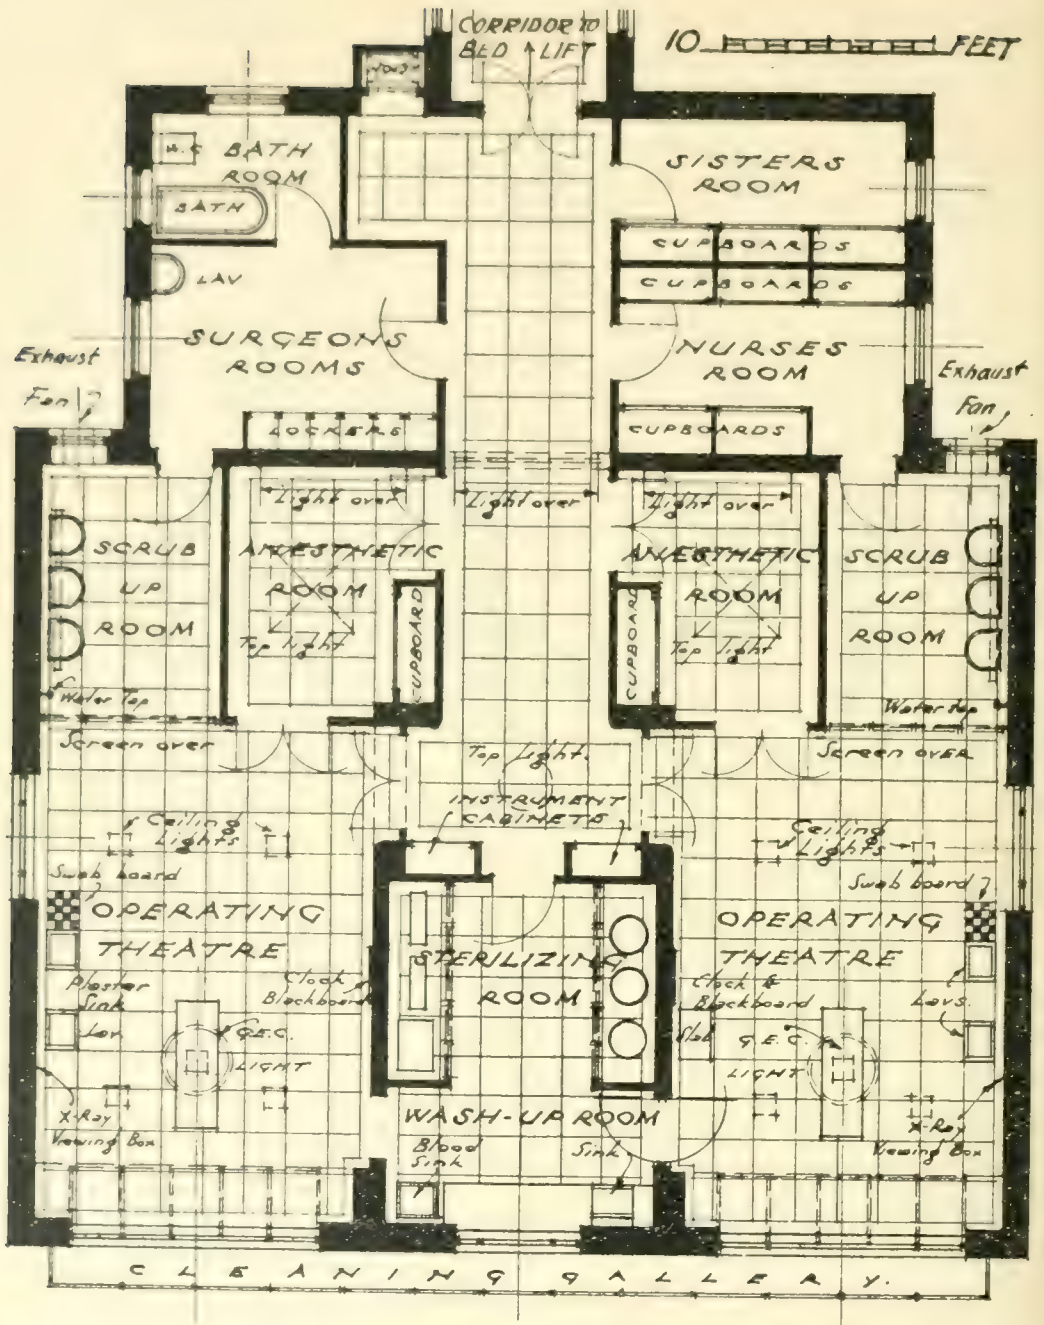 CORRIDOR TO
BED LIFT
10 FEET
W.C
BATH
ROOM
BATH
SISTERS
ROOM
CUPBOARDS
CUPBOARDS
LAV
SURGEONS
ROOMS
NURSES
ROOM
Exhaust
Fan
Exhaust
Fan
LOCKERS
CUPBOARDS
Light over
Light over
Light over
SCRUB
UP
ROOM
ANESTHETIC
ROOM
Top light
CUPBOARD
CUPBOARD
ANESTHETIC
ROOM
Top light
SCRUB
UP
ROOM
Water Tap
Water tap
Screen over
Top Light.
Screen over
INSTRUMENT
CABINETS
Ceiling
Lights
Ceiling
Lights
Swab board
Swab board
OPERATING
THEATRE
OPERATING
THEATRE
STERILIZING
ROOM
Plaster
Sink
Lav.
Clock
Blackboard
Clock &
Blackboard
Slab
Lavs.
G.E.C.
LIGHT
G.E.C.
LIGHT
X-Ray
Viewing Box
WASH-UP ROOM
Blood
Sink
Sink
X-Ray
Viewing Box
CLEANING GALLERY.